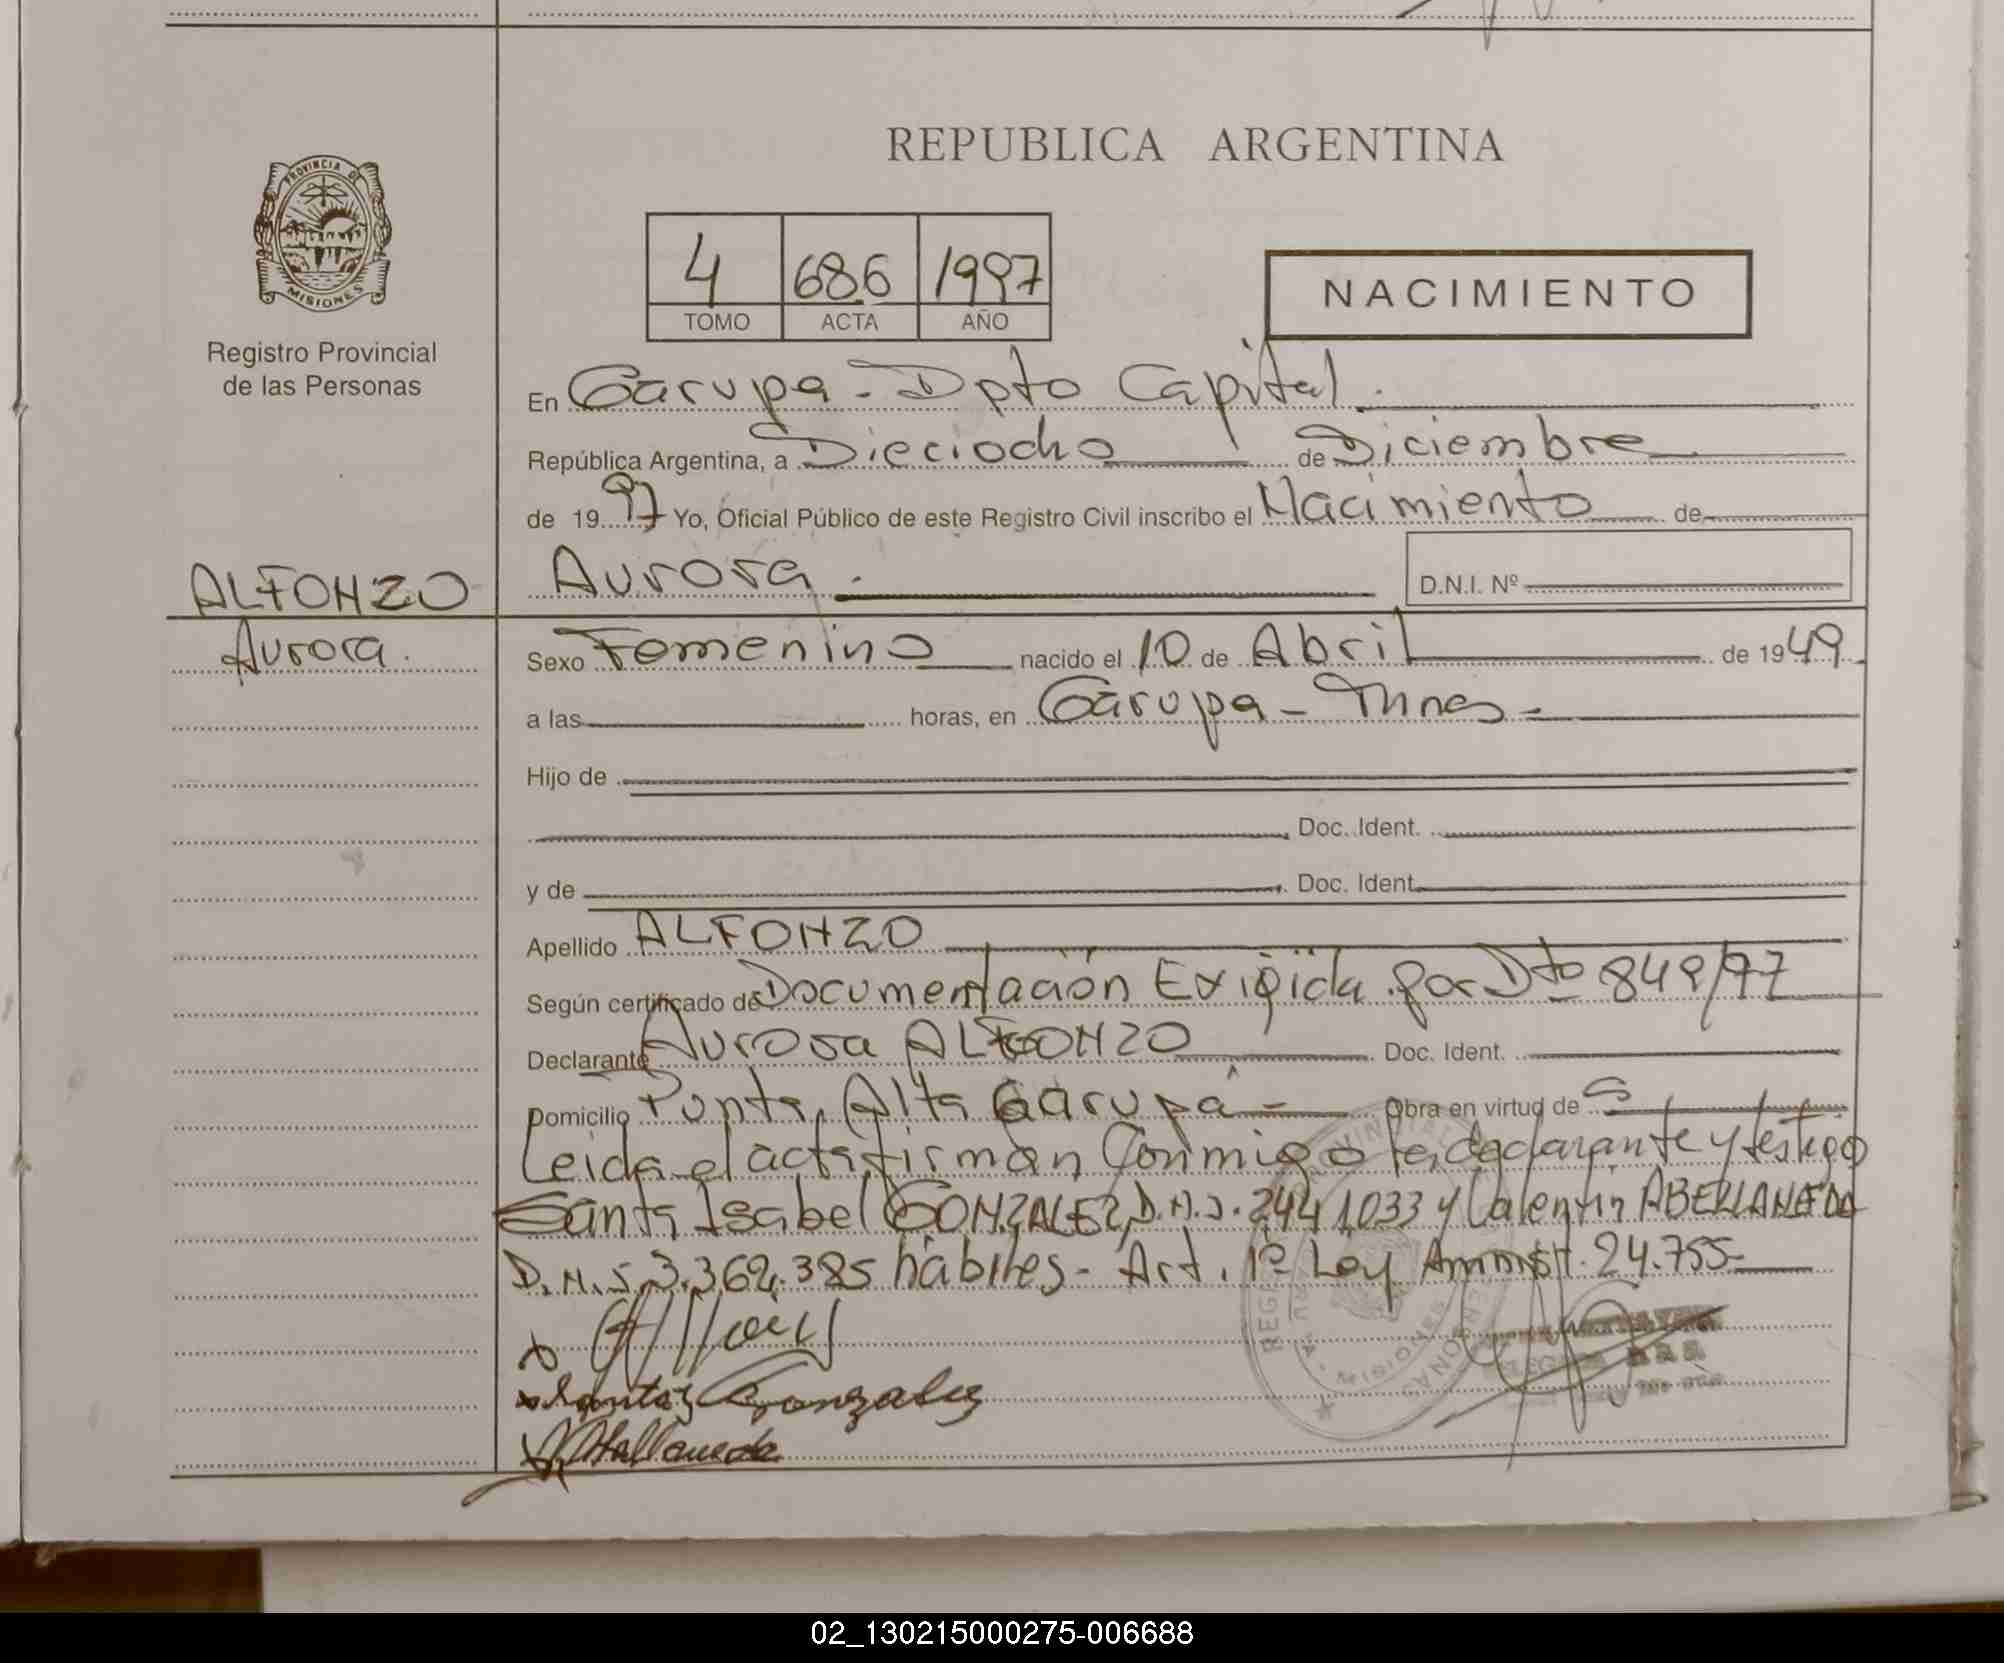 REPUBLICA ARGENTINA
PROVINCIA DE
MISIONES
Registro Provincial
de las Personas
4 686 1997
TOMO ACTA AÑO
NACIMIENTO
En Garupa - Dpto Capital.
República Argentina, a Dieciocho de Diciembre
de 1997 Yo, Oficial Público de este Registro Civil inscribo el Nacimiento de
ALFONZO
Aurora.
Aurora.
D.N.I. Nº
Sexo Femenino nacido el 10 de Abril de 1949
a las horas, en Garupa - Mnes -
Hijo de
Doc. Ident.
y de Doc. Ident.
Apellido ALFONZO
Según certificado de Documentación Exigida por Dto 849/97
Declarante Aurora ALFONZO Doc. Ident.
Domicilio Punta Alta Garupá - Obra en virtud de
Leida el acta firman Conmigo la declarante y testigo
Santa Isabel GONZALEZ D.N.I. 2441033 y Valentin ABELLANEDA
D.N.I. 3.362.385 hábiles - Art. 1º Ley Amnist. 24.755-
Santa Gonzalez
02_130215000275-006688